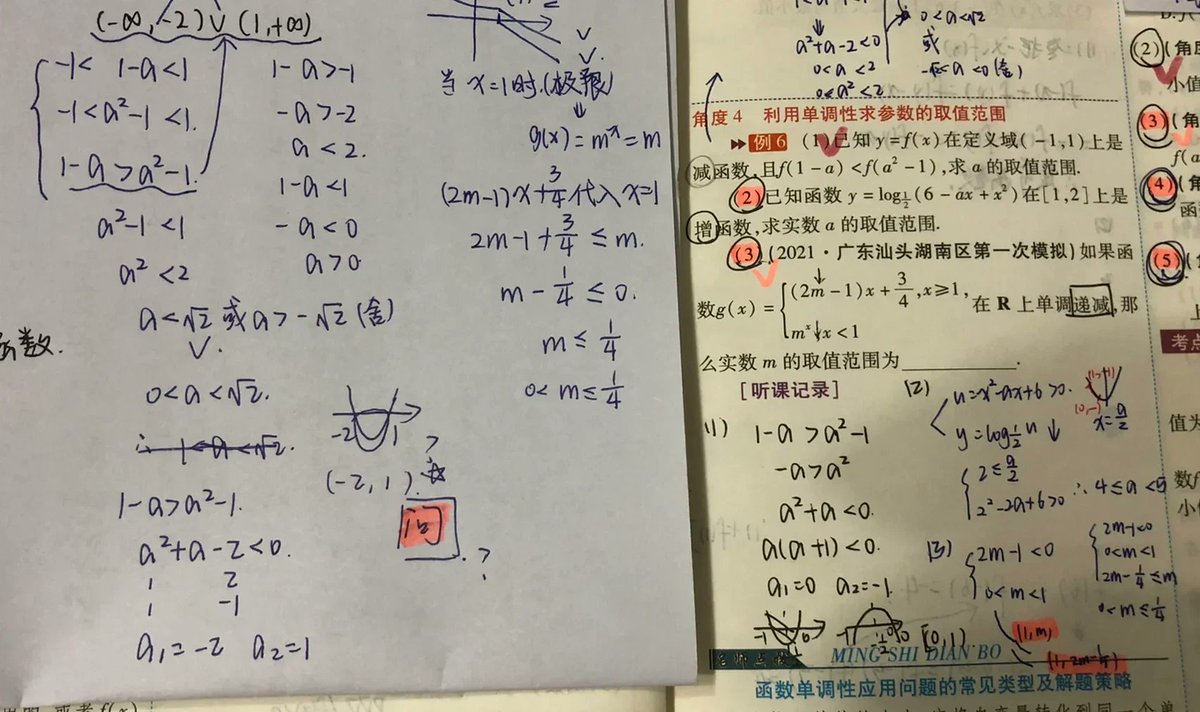 (-∞,-2)∪(1,+∞)
-1< 1-a<1
-1<a²-1<1.
1-a>a²-1.
a²-1<1
a²<2
a<√2 或 a>-√2 (舍)
函数.
0<a<√2.
∴ -1<a<√2.
1-a>a²-1.
a²+a-2<0.
1 2
1 -1
a₁=-2 a₂=1
1-a>-1
-a>-2
a<2.
1-a<1
-a<0
a>0
-2 1
(-2,1).
问
?
当x=1时.(极限)
g(x)=mˣ=m
(2m-1)x+3/4代入x=1
2m-1+3/4≤m.
m-1/4≤0.
m≤1/4
0<m≤1/4
a²+a-2<0
0<a<2
0<a²<2
0<a<√2
或
-√2<a<0(舍)
角度4 利用单调性求参数的取值范围
例6 (1)已知y=f(x)在定义域(-1,1)上是
减函数,且f(1-a)<f(a²-1),求a的取值范围.
(2)已知函数y=log_{1/2}(6-ax+x²)在[1,2]上是
增函数,求实数a的取值范围.
(3)(2021·广东汕头湖南区第一次模拟)如果函
数g(x)={(2m-1)x+3/4,x≥1,
mˣ,x<1
在R上单调递减,那
么实数m的取值范围为________.
[听课记录]
(1)
1-a>a²-1
-a>a²
a²+a<0.
a(a+1)<0.
a₁=0 a₂=-1.
(2)
u=x²-ax+6>0.
y=log_{1/2}u↓
x=a/2
2≤a/2
2²-2a+6>0
∴4≤a<5
(3)
2m-1<0
0<m<1
2m-1<0
0<m<1
2m-1/4≤m
0<m≤1/4
(1,m)
(1,2m-1/4)
名师点拨 MING SHI DIAN BO
函数单调性应用问题的常见类型及解题策略
(2)(角
小值
(3)(角
f(a
(4)(角
函
(5)(
上
考点
值为
数f
小